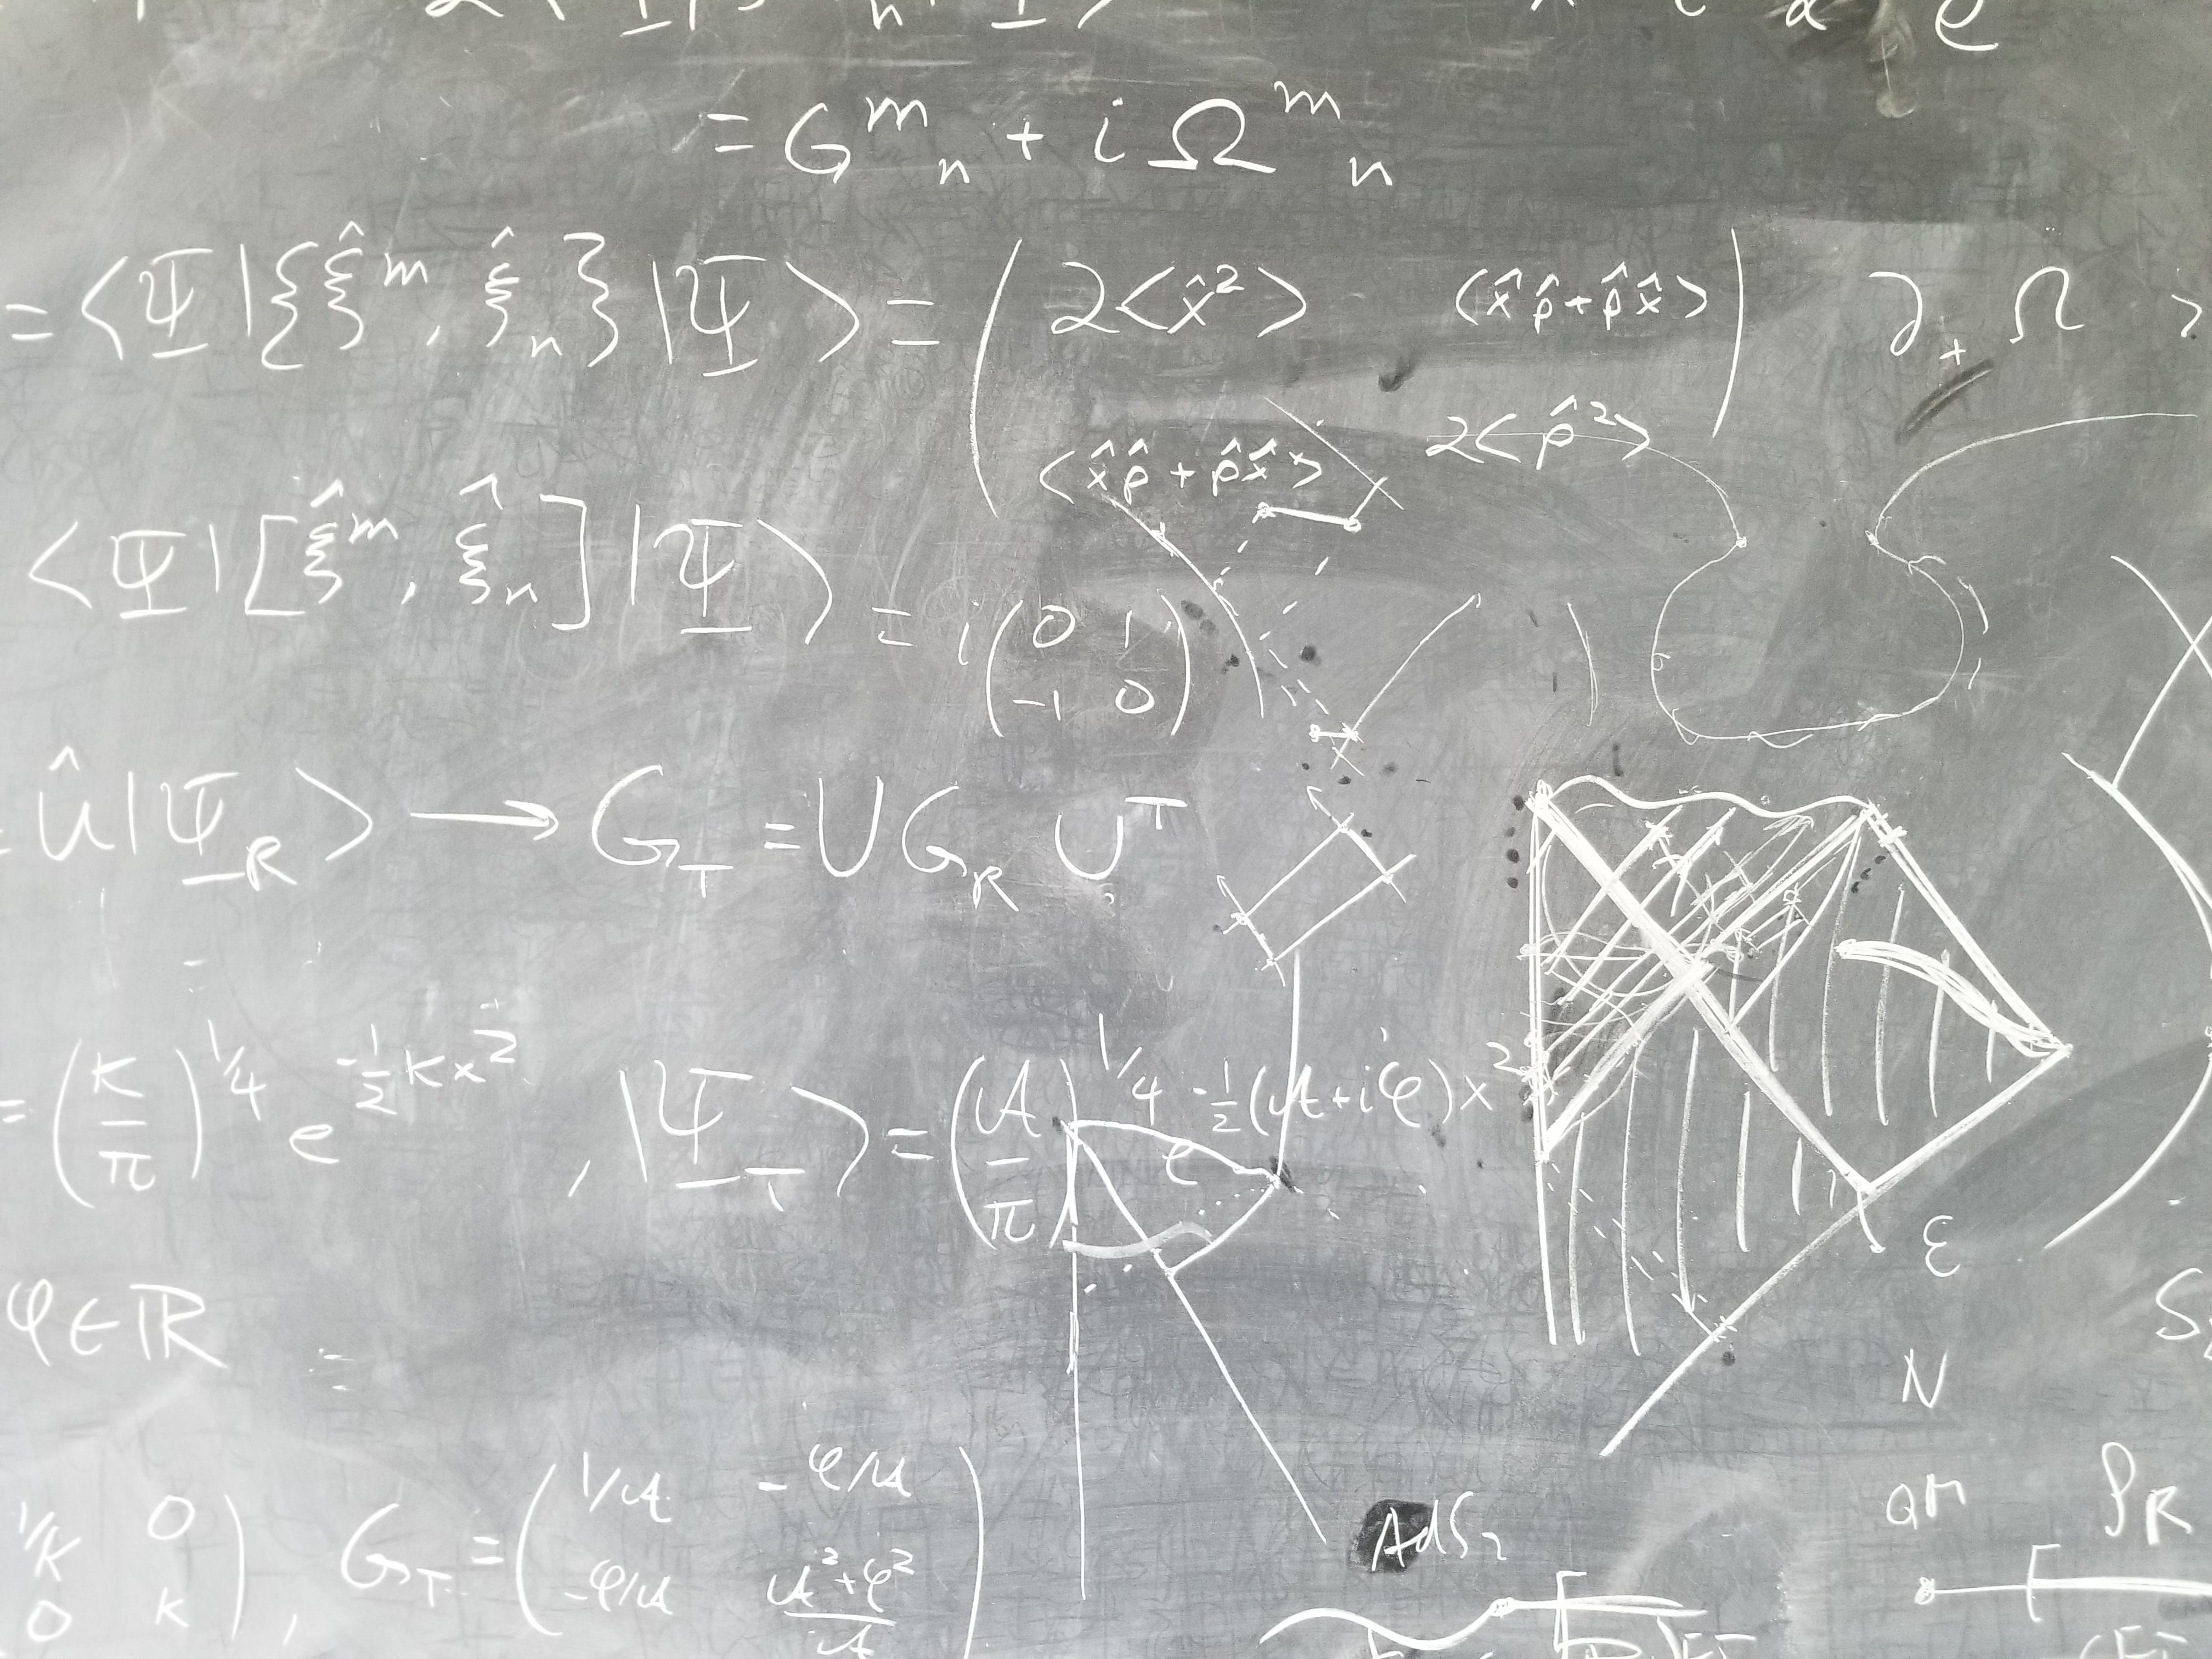 = G^m_n + i Ω^m_n
= ⟨Ψ|{ξ̂^m, ξ̂_n}|Ψ⟩ = ( 2⟨x̂²⟩ ⟨x̂p̂+p̂x̂⟩ ∂₊Ω >
⟨x̂p̂+p̂x̂⟩ 2⟨p̂²⟩ )
⟨Ψ|[ξ̂^m, ξ̂_n]|Ψ⟩ = i ( 0 1
-1 0 )
= û|Ψ_R⟩ → G_T = U G_R U^T
= (K/π)^{1/4} e^{-½Kx²}, |Ψ_T⟩ = (A/π)^{1/4} e^{-½(A+iφ)x²}
ε
φ∈ℝ
N
1/K 0
0 K ), G_T = ( 1/A -φ/A
-φ/A A²+φ²/A )
AdS₂
QM ρ_R